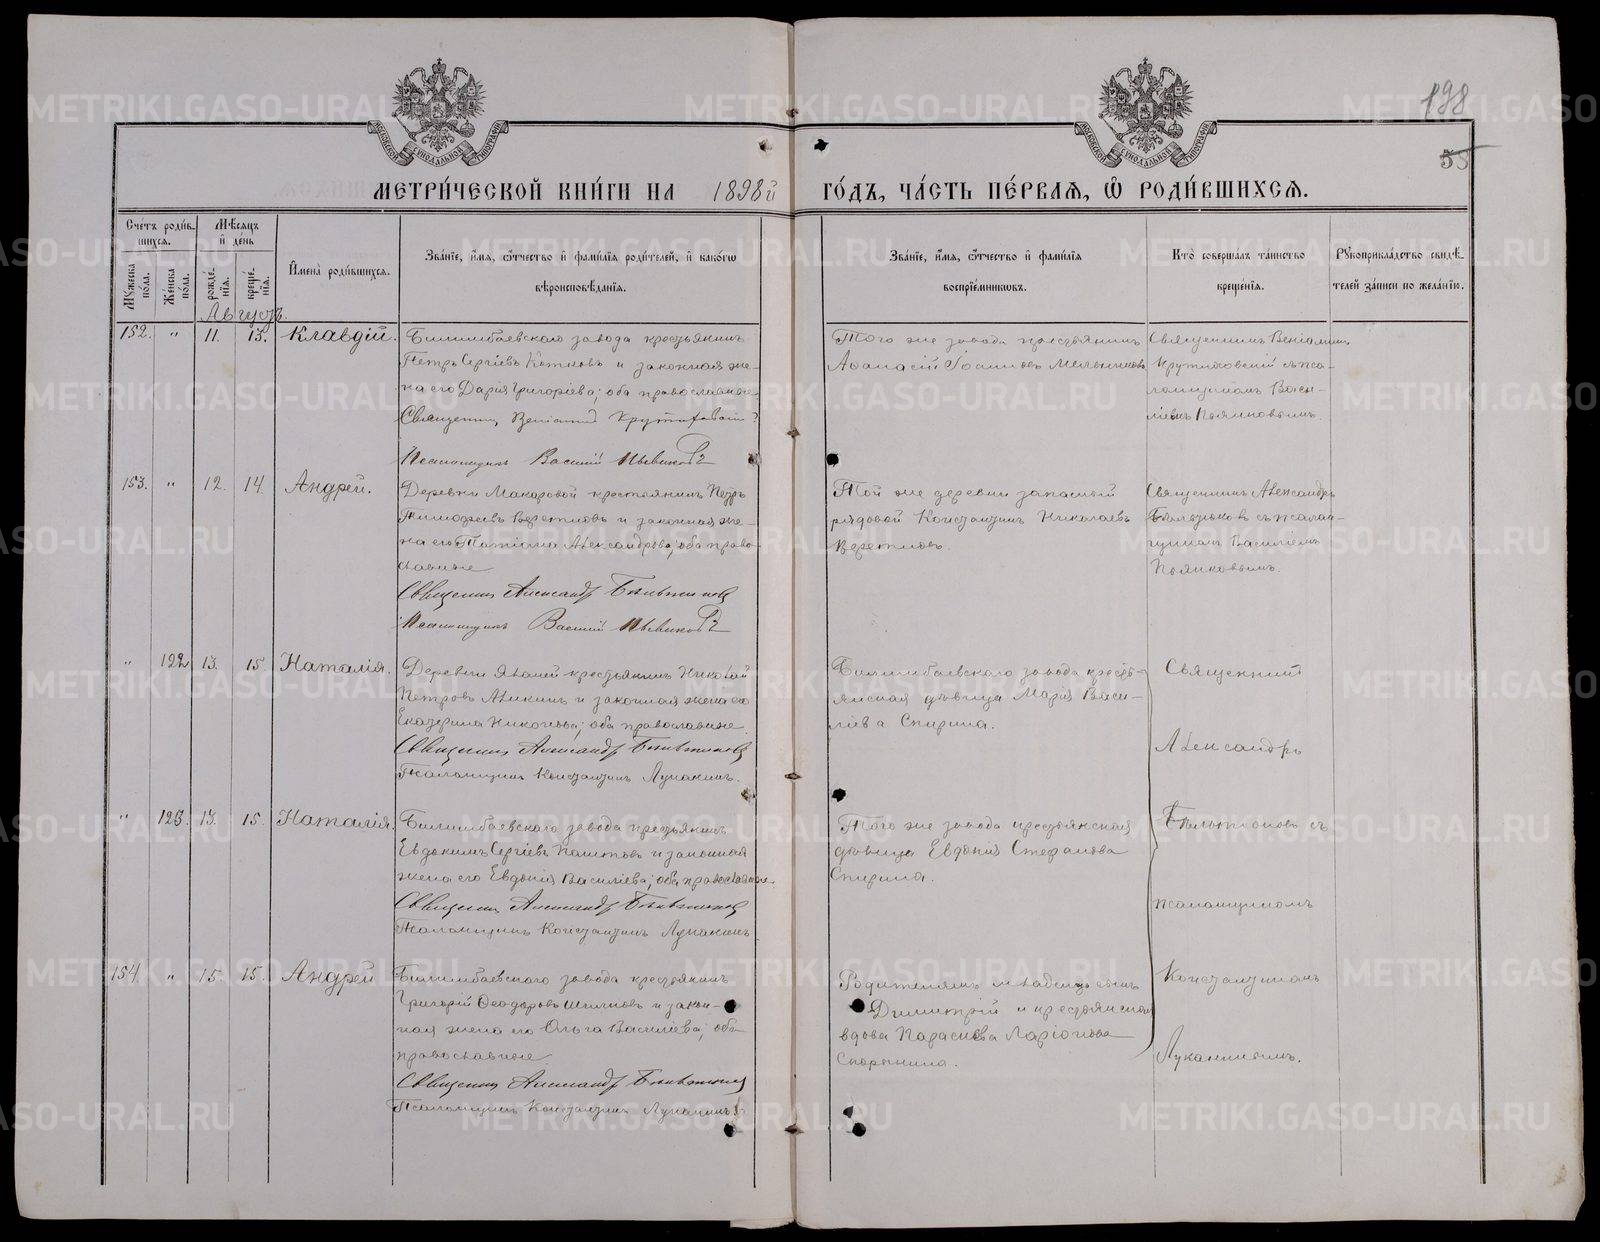 198
55
МОСКОВСКОЙ СУНОДАЛЬНОЙ ТИПОГРАФІИ
МОСКОВСКОЙ СУНОДАЛЬНОЙ ТИПОГРАФІИ
МЕТРИ́ЧЕСКОЙ КНИ́ГИ НА 1898й ГО́ДЪ, ЧА́СТЬ ПЕ́РВАЯ, Ѡ҆ РОДИ́ВШИХСЯ.
Сче́тъ роди́в-
шихся.
Му́жеска по́ла.
Же́нска по́ла.
Мѣ́сяцъ и де́нь
рожде́-
нія.
креще́-
нія.
Имена̀ роди́вшихся.
Зва́ніе, и́мя, о́тчество и фами́лія роди́телей, и како́гѡ
вѣроисповѣ́данія.
Зва́ніе, и́мя, о́тчество и фами́лія
воспріе́мниковъ.
Кто̀ соверша́лъ та́инство
креще́нія.
Рукоприкла́дство свидѣ́-
телей за́писи по жела́нію.
Августъ.
152. " 11. 13. Клавдій.
Билимбаевскаго завода крестьянинъ
Петръ Сергіевъ и законная же-
на его Дарія Григоріева; оба православные
Священникъ Веніаминъ
Псаломщикъ Василій Пьянковъ
Того же завода крестьянинъ
Аѳанасій Іоанновъ Мельниковъ
Священникъ Веніаминъ
съ пса-
ломщикомъ Васи-
ліемъ Пьянковымъ.
153. " 12. 14. Андрей.
Деревни Макаровой крестьянинъ Петръ
Тимоѳеевъ и законная же-
на его Татіана Александрова; оба право-
славные
Священникъ Александръ
Псаломщикъ Василій Пьянковъ
Той же деревни запасный
рядовой Константинъ Николаевъ
Священникъ Александръ
съ псалом-
щикомъ Василіемъ
Пьянковымъ.
" 122 13. 15. Наталія.
Деревни крестьянинъ Николай
Петровъ и законная жена его
Екатерина Николаева; оба православные
Священникъ Александръ
Псаломщикъ Константинъ Луканинъ.
Билимбаевскаго завода кресть-
янская дѣвица Марія Васи-
ліева Спирина.
Священникъ
Александръ
" 123. 13. 15. Наталія.
Билимбаевскаго завода крестьянинъ
Евдокимъ Сергіевъ и законная
жена его Евдокія Василіева; оба православные.
Священникъ Александръ
Псаломщикъ Константинъ Луканинъ
Того же завода крестьянская
дѣвица Евдокія Стефанова
Спирина.
съ
псаломщикомъ
154 " 15. 15. Андрей
Билимбаевскаго завода крестьянинъ
Григорій Ѳеодоровъ и закон-
ная жена его Ольга Василіева; оба
православные
Священникъ Александръ
Псаломщикъ Константинъ Луканинъ
Родителямъ младенца сынъ
Димитрій и крестьянская
вдова Параскева Ларіонова
Константиномъ
Луканинымъ.
METRIKI.GASO-URAL.RU